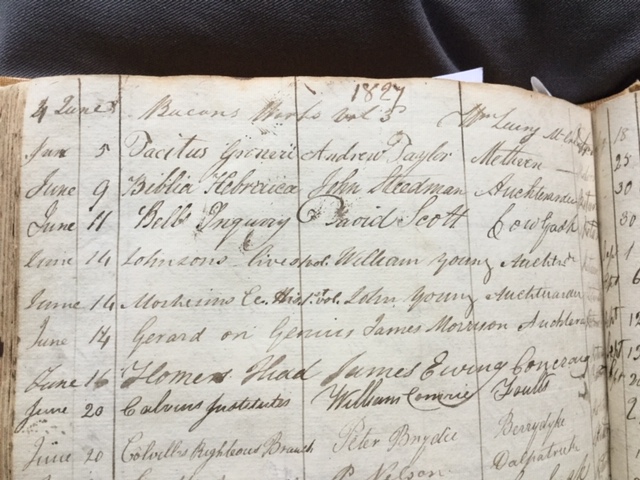 1827
4 June 8 Bacons Works vol 3 Wm
Jun 5 Tacitus Gronevii Andrew Taylor Methven
June 9 Biblia Hebraica John Steadman Auchterarder
June 11 Bells Inquiry David Scott Cowgask
June 14 Johnsons lives vol. William Young Auchtr
June 14 Mosheims Ec. Hist. vol. John Young Auchterarder
June 14 Gerard on Genius James Morrison Auchterar
June 16 Homers Iliad James Ewing Concraig
June 20 Calvins Institutes William Comrie Foulis
June 20 Colvills Righteous Branch Peter Brydie Berrydyke
P. Nelson Dalpatrick
18
25
30
30
1
6
12